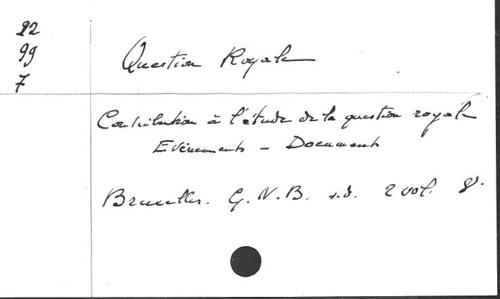 22
99
7
Question Royale
Contribution à l'étude de la question royale
Evénements - Documents
Bruxelles. G.N.B. s.d. 2 vol. 8°.